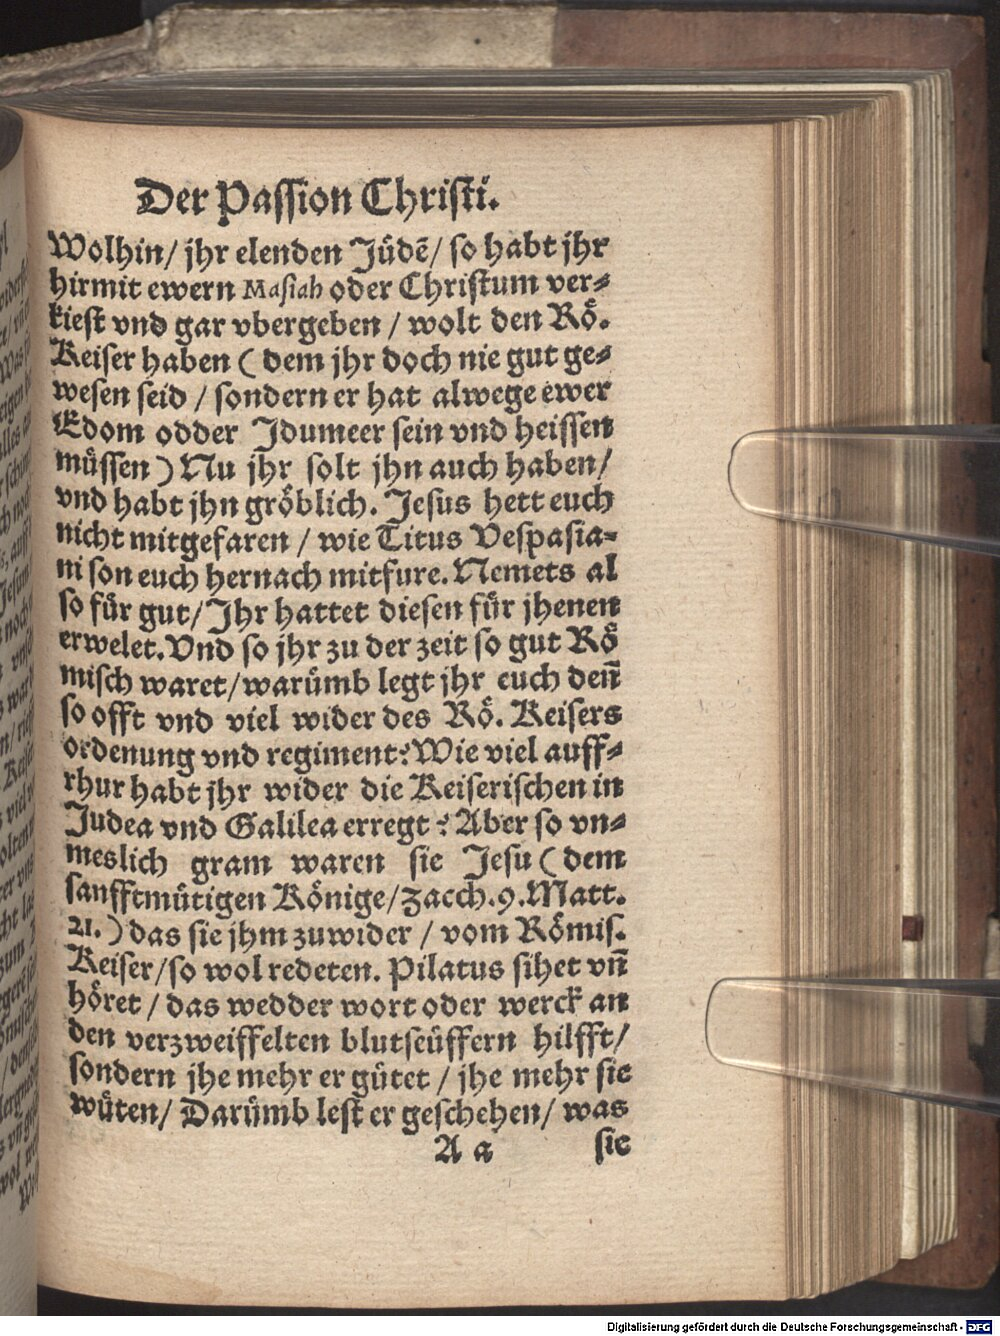 Der Passion Christi.
Wolhin/ jhr elenden Jüdẽ/ so habt jhr
hirmit ewern Masiah oder Christum ver⸗
kiest vnd gar vbergeben / wolt den Rö.
Keiser haben ( dem jhr doch nie gut ge⸗
wesen seid / sondern er hat alwege ewer
Edom odder Idumeer sein vnd heissen
müssen ) Nu jhr solt jhn auch haben/
vnd habt jhn gröblich. Jesus hett euch
nicht mitgefaren / wie Titus Vespasia⸗
ni son euch hernach mitfure. Nemets al
so für gut/ Ihr hattet diesen für jhenen
erwelet. Vnd so jhr zu der zeit so gut Rö
misch waret/ warümb legt jhr euch deñ
so offt vnd viel wider des Rö. Keisers
ordenung vnd regiment? Wie viel auff⸗
rhur habt jhr wider die Keiserischen in
Judea vnd Galilea erregt? Aber so vn⸗
meslich gram waren sie Jesu ( dem
sanfftmütigen Könige/ Zacch. 9. Matt.
21. ) das sie jhm zuwider / vom Römis.
Keiser/ so wol redeten. Pilatus sihet vñ
höret / das wedder wort oder werck an
den verzweiffelten blutseüffern hilfft/
sondern jhe mehr er gütet / jhe mehr sie
wüten/ Darümb lest er geschehen/ was
A a sie
Digitalisierung gefördert durch die Deutsche Forschungsgemeinschaft - DFG